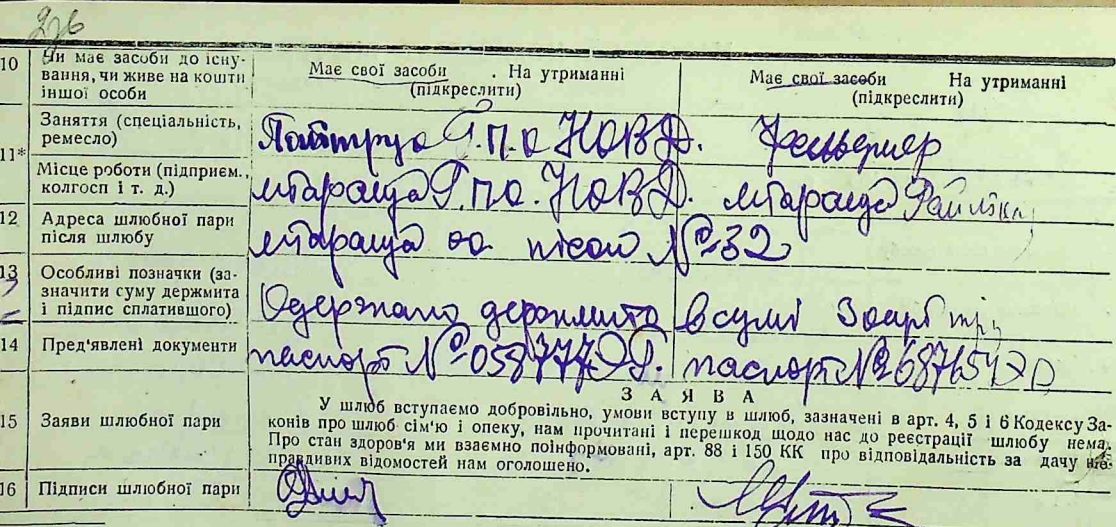 226
10 Чи має засоби до існу-
вання, чи живе на кошти
іншої особи
Має свої засоби . На утриманні
(підкреслити)
Має свої засоби На утриманні
(підкреслити)
11* Заняття (спеціальність,
ремесло)
Г.П.О НОВД. Фельдшер
Місце роботи (підприєм.,
колгосп і т. д.)
мтараща Г.ПО. НОВД. мтараща Рай
12 Адреса шлюбної пари
після шлюбу
мтараща №32
13 Особливі позначки (за-
значити суму держмита
і підпис сплатившого)
Одержано держмита в сумі 3 карб три
14 Пред'явлені документи
паспорт № паспорт №
З А Я В А
15 Заяви шлюбної пари
У шлюб вступаємо добровільно, умови вступу в шлюб, зазначені в арт. 4, 5 і 6 Кодексу За-
конів про шлюб сім'ю і опеку, нам прочитані і перешкод щодо нас до реєстрації шлюбу нема.
Про стан здоров'я ми взаємно поінформовані, арт. 88 і 150 КК про відповідальність за дачу не-
правдивих відомостей нам оголошено.
16 Підписи шлюбної пари